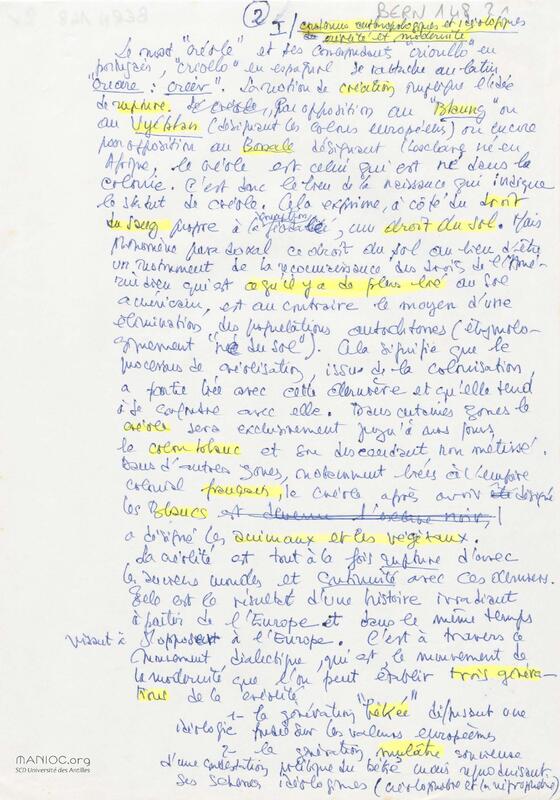 BERN 148_21
2
I / contenus anthropologiques et idéologiques
créolité et modernité
Le mot "créole" et ses correspondants "crioullo" en
portugais, "criollo" en espagnol se rattache au latin
"creare : créer". La notion de création implique l'idée
de rupture. Le créole, par opposition au "Blanc" ou
au (désignant les colons européens) ou encore
par opposition au Bossale désignant l'esclave né en
Afrique, le créole est celui qui est né dans la
colonie. C'est donc le lieu de la naissance qui indique
le statut de créole. Cela exprime, à côté du droit
du sang propre à la, un droit du sol. Mais
phénomène paradoxal ce droit du sol au lieu d'être
un instrument de la reconnaissance des droits de l'Amé-
rindien qui est ce qu'il y a de plus lié au sol
américain, est au contraire le moyen d'une
élimination des populations autochtones (étymolo-
giquement "né du sol"). Cela signifie que le
processus de créolisation, issue de la colonisation,
a partie liée avec cette dernière et qu'elle tend
à se confondre avec elle. Dans certaines zones le
créole sera exclusivement jusqu'à nos jours
le colon blanc et son descendant non métissé.
Dans d'autres zones, notamment liées à l'empire
colonial français, le créole après avoir désigné
les Blancs est devenu l'esclave noir,
a désigné les animaux et les végétaux.
La créolité est tout à la fois rupture d'avec
les anciens mondes et continuité avec ces derniers.
Cela est le résultat d'une histoire irradiant
à partir de l'Europe et dans le même temps
visant à s'opposer à l'Europe. C'est à travers ce
mouvement dialectique, qui est le mouvement de
la modernité que l'on peut établir trois généra-
tions de la créolité
1- la génération "békée" diffusant une
idéologie fondée sur les valeurs européennes
2- la génération mulâtre soucieuse
d'une contestation politique du béké mais reproduisant
ses schémas idéologiques
MANIOC.org
SCD Université des Antilles